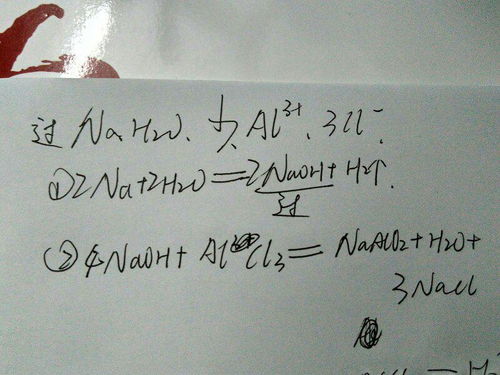 过 Na、H₂O、少 Al³⁺、3Cl⁻.
①2Na+2H₂O=2NaOH+H₂↑.
过
②4NaOH+AlCl₃=NaAlO₂+H₂O+
3NaCl